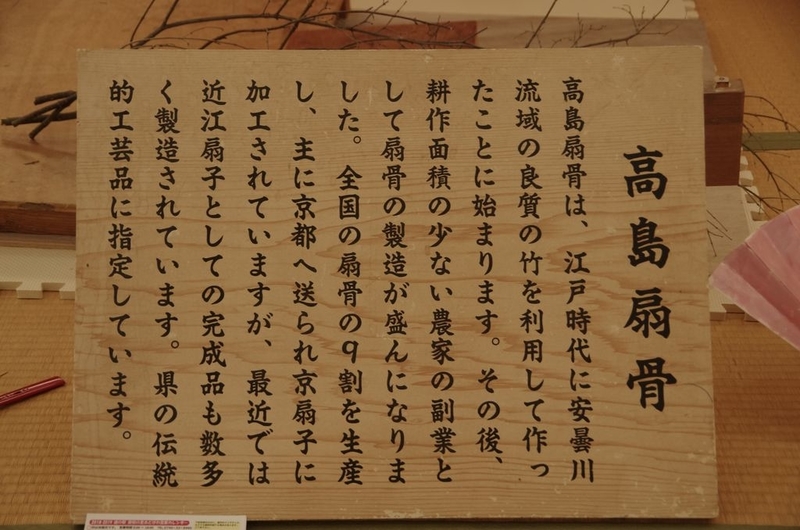 高島扇骨
高島扇骨は、江戸時代に安曇川
流域の良質の竹を利用して作っ
たことに始まります。その後、
耕作面積の少ない農家の副業と
して扇骨の製造が盛んになりま
した。全国の扇骨の9割を生産
し、主に京都へ送られ京扇子に
加工されていますが、最近では
近江扇子としての完成品も数多
く製造されています。県の伝統
的工芸品に指定しています。